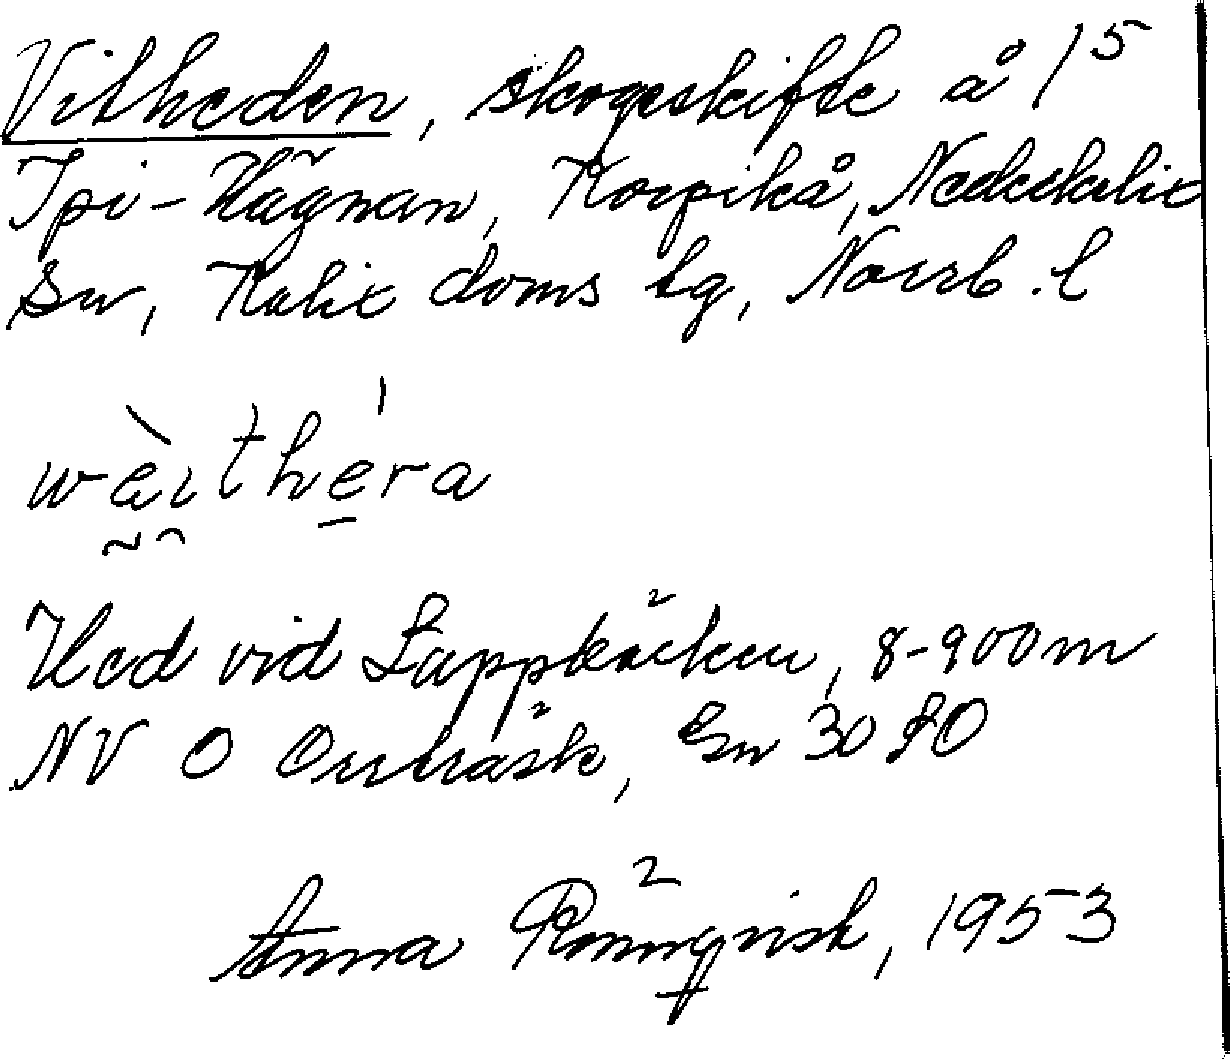 Vitheden, skogsskifte å 1⁵
Ipi-Hägnan, Korpikå, Nederkalix
Sn, Kalix doms lg, Norrb. l
wèithéra
Hed vid Lappbäcken, 8-900m
NV O Orrträsk, Gn 30 SO
Anna Rönnqvist, 1953